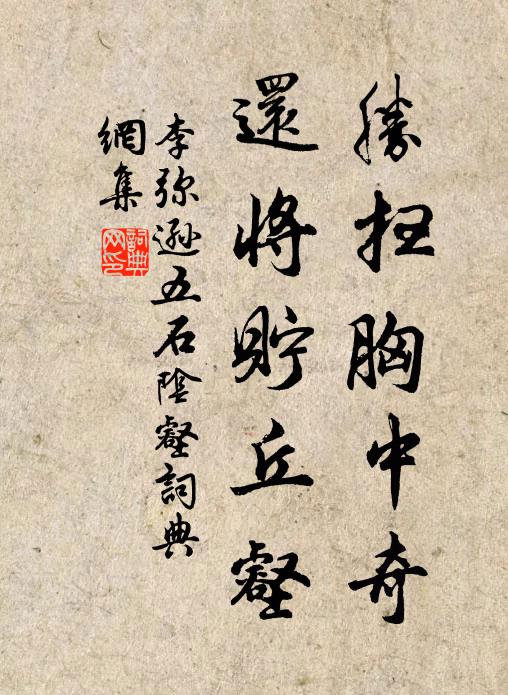 勝扫胸中奇
還將貯丘壑
李弥遜五石陰壑詞典
網集
詞典網印